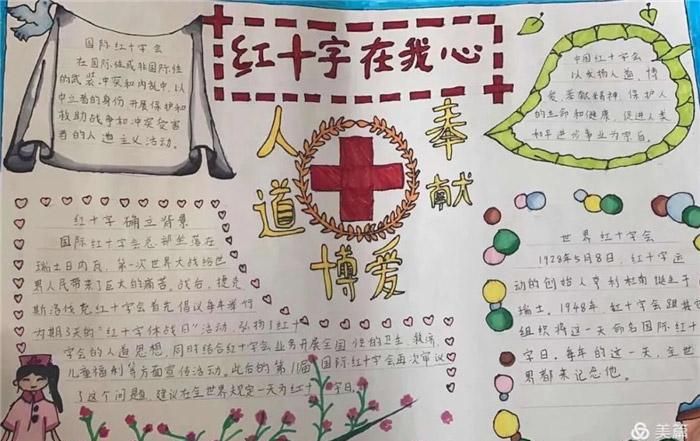 红十字在我心
国际红十字会
在国际性或非国际性
的武装冲突和内乱中，以
中立者的身份开展保护和
救助战争和冲突受害
者的人道主义活动。
中国红十字会
以发扬人道，博
爱，奉献精神，保护人
的生命和健康，促进人类
和平进步事业为宗旨。
人道
博爱
奉献
红十字确立背景
国际红十字会总部坐落在
瑞士日内瓦，第一次世界大战给世
界人民带来了巨大的痛苦。战后，捷克
斯洛伐克红十字会首先倡议每年举行
为期3天的"红十字休战日"活动，弘扬了红十
字会的人道思想，同时结合红十字会业务开展全国性的卫生、救济、
儿童福利等方面宣传活动。此后的第11届国际红十字会再次审议
了这个问题，建议在全世界规定一天为红十字日。
世界红十字会
1928年5月8日，红十字运
动的创始人亨利杜南诞生于
瑞士。1948年，红十字会跟其
组织将这一天命名国际红十
字日，每年的这一天，全世
界都来记念他。
美篇